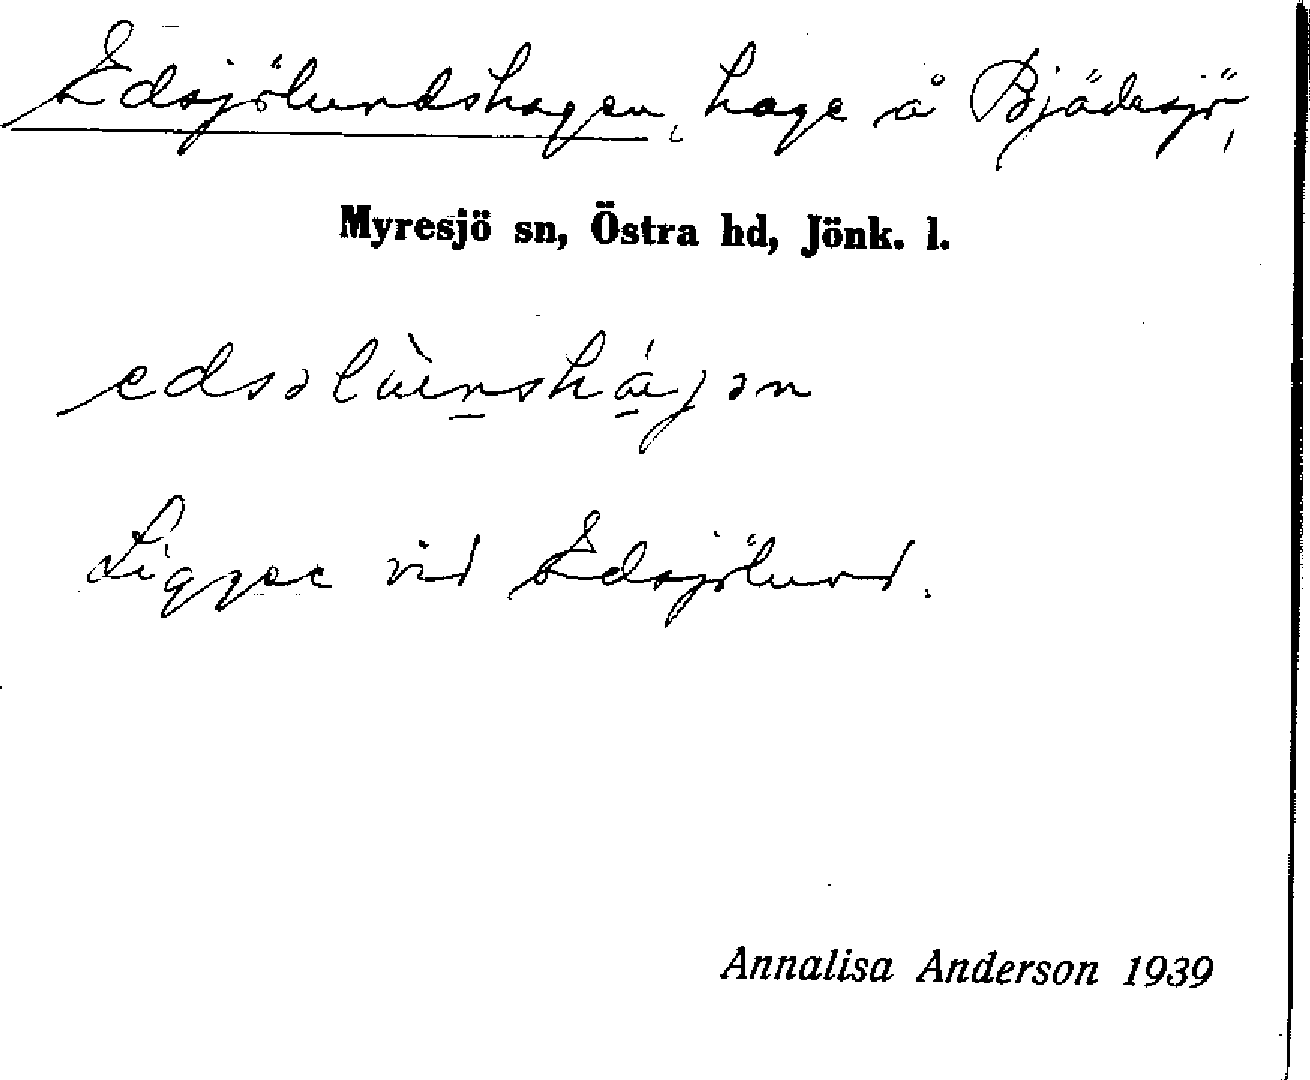 Edsjölundshagen, hage å Bjädesjö,
Myresjö sn, Östra hd, Jönk. l.
edsəlùnshágən
Ligger vid Edsjölund.
Annalisa Anderson 1939